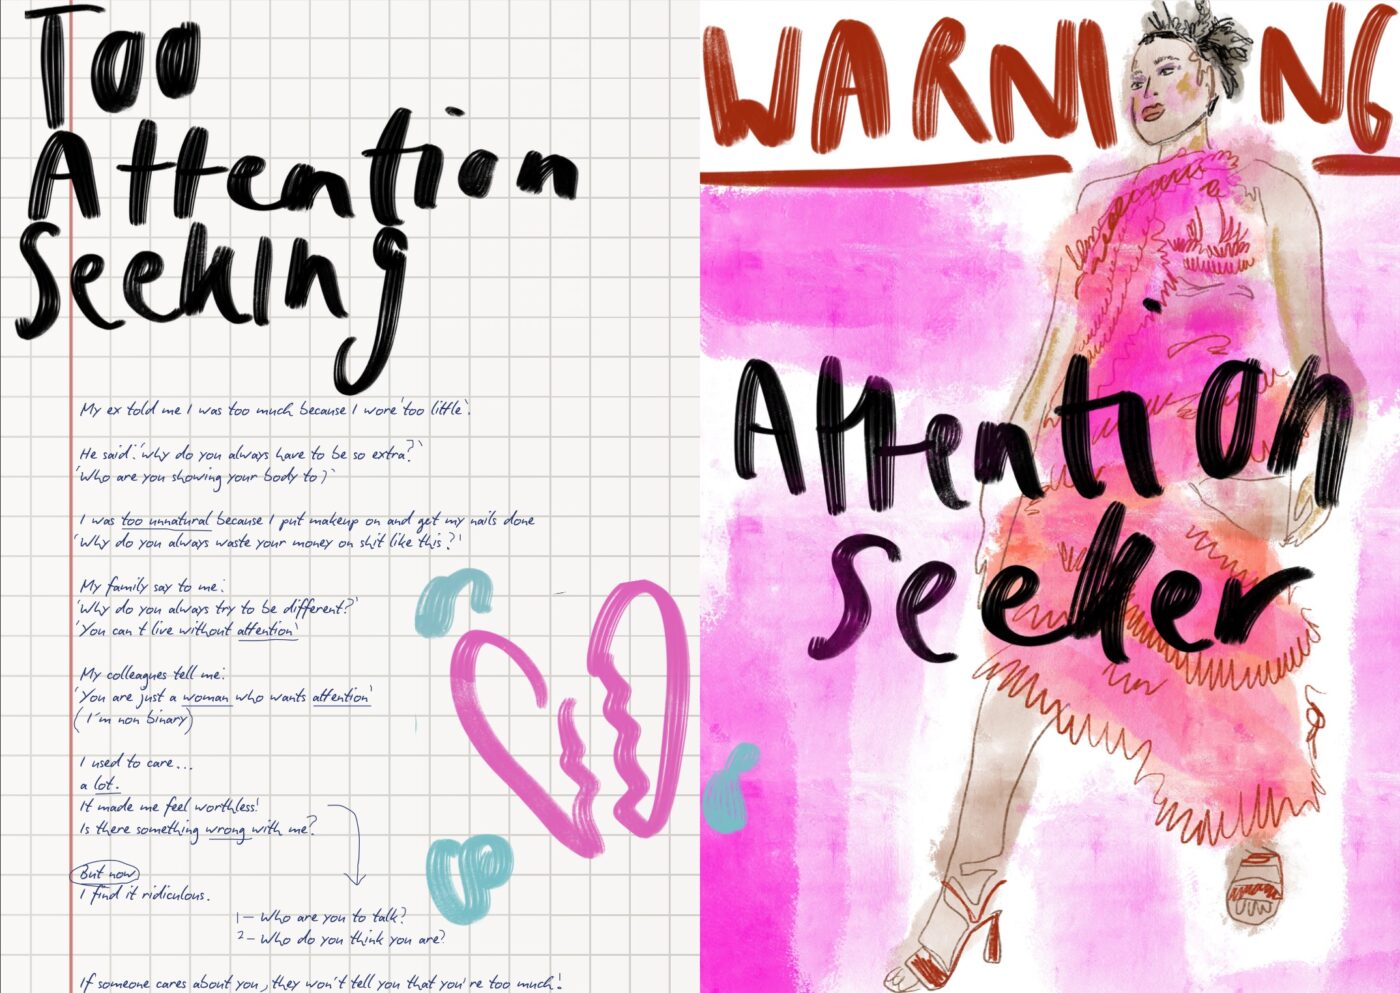 Too
Attention
Seeking
My ex told me I was too much because I wore 'too little'.
He said: 'why do you always have to be so extra?'
'Who are you showing your body to?'
I was too unnatural because I put makeup on and get my nails done
'Why do you always waste your money on shit like this?'
My family say to me:
'Why do you always try to be different?'
'You can't live without attention'
My colleagues tell me:
'You are just a woman who wants attention'
(I'm non binary)
I used to care...
a lot.
It made me feel worthless!
Is there something wrong with me?
But now
I find it ridiculous.
1- Who are you to talk?
2- Who do you think you are?
If someone cares about you, they won't tell you that you're too much!
WARNING
Attention
Seeker